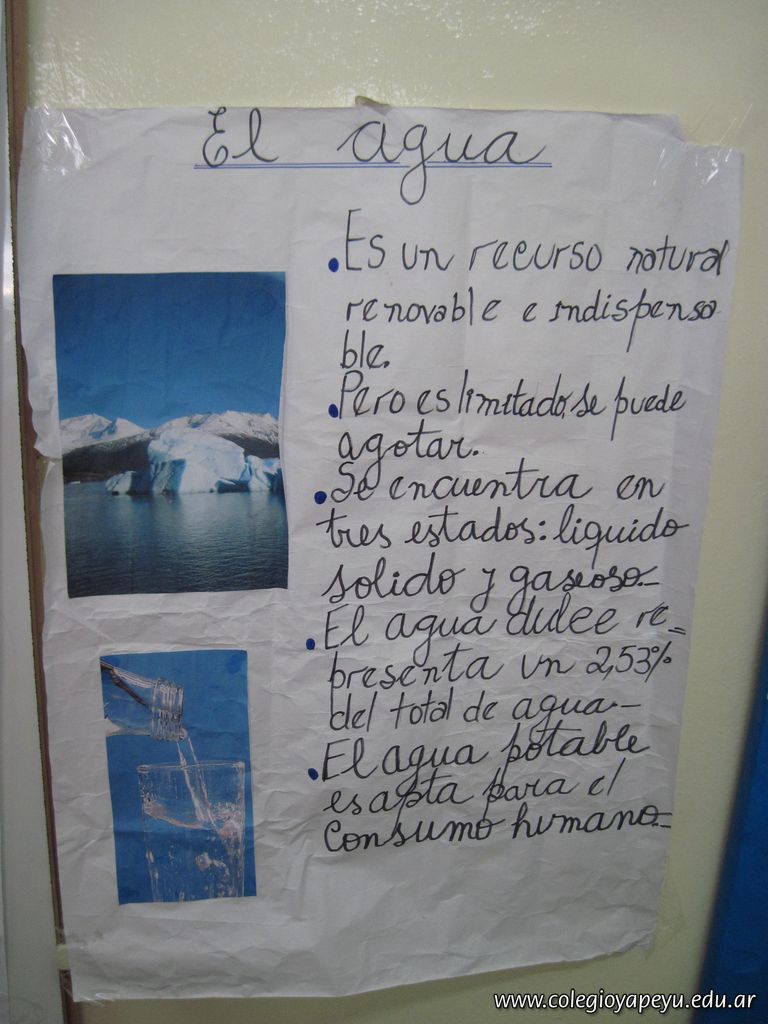 El agua
• Es un recurso natural
renovable e indispensa
ble.
• Pero es limitado, se puede
agotar.
• Se encuentra en
tres estados: liquido
solido y gaseoso.-
• El agua dulce re=
presenta un 2,53%
del total de agua.-
• El agua potable
es apta para el
consumo humano.-
www.colegioyapeyu.edu.ar